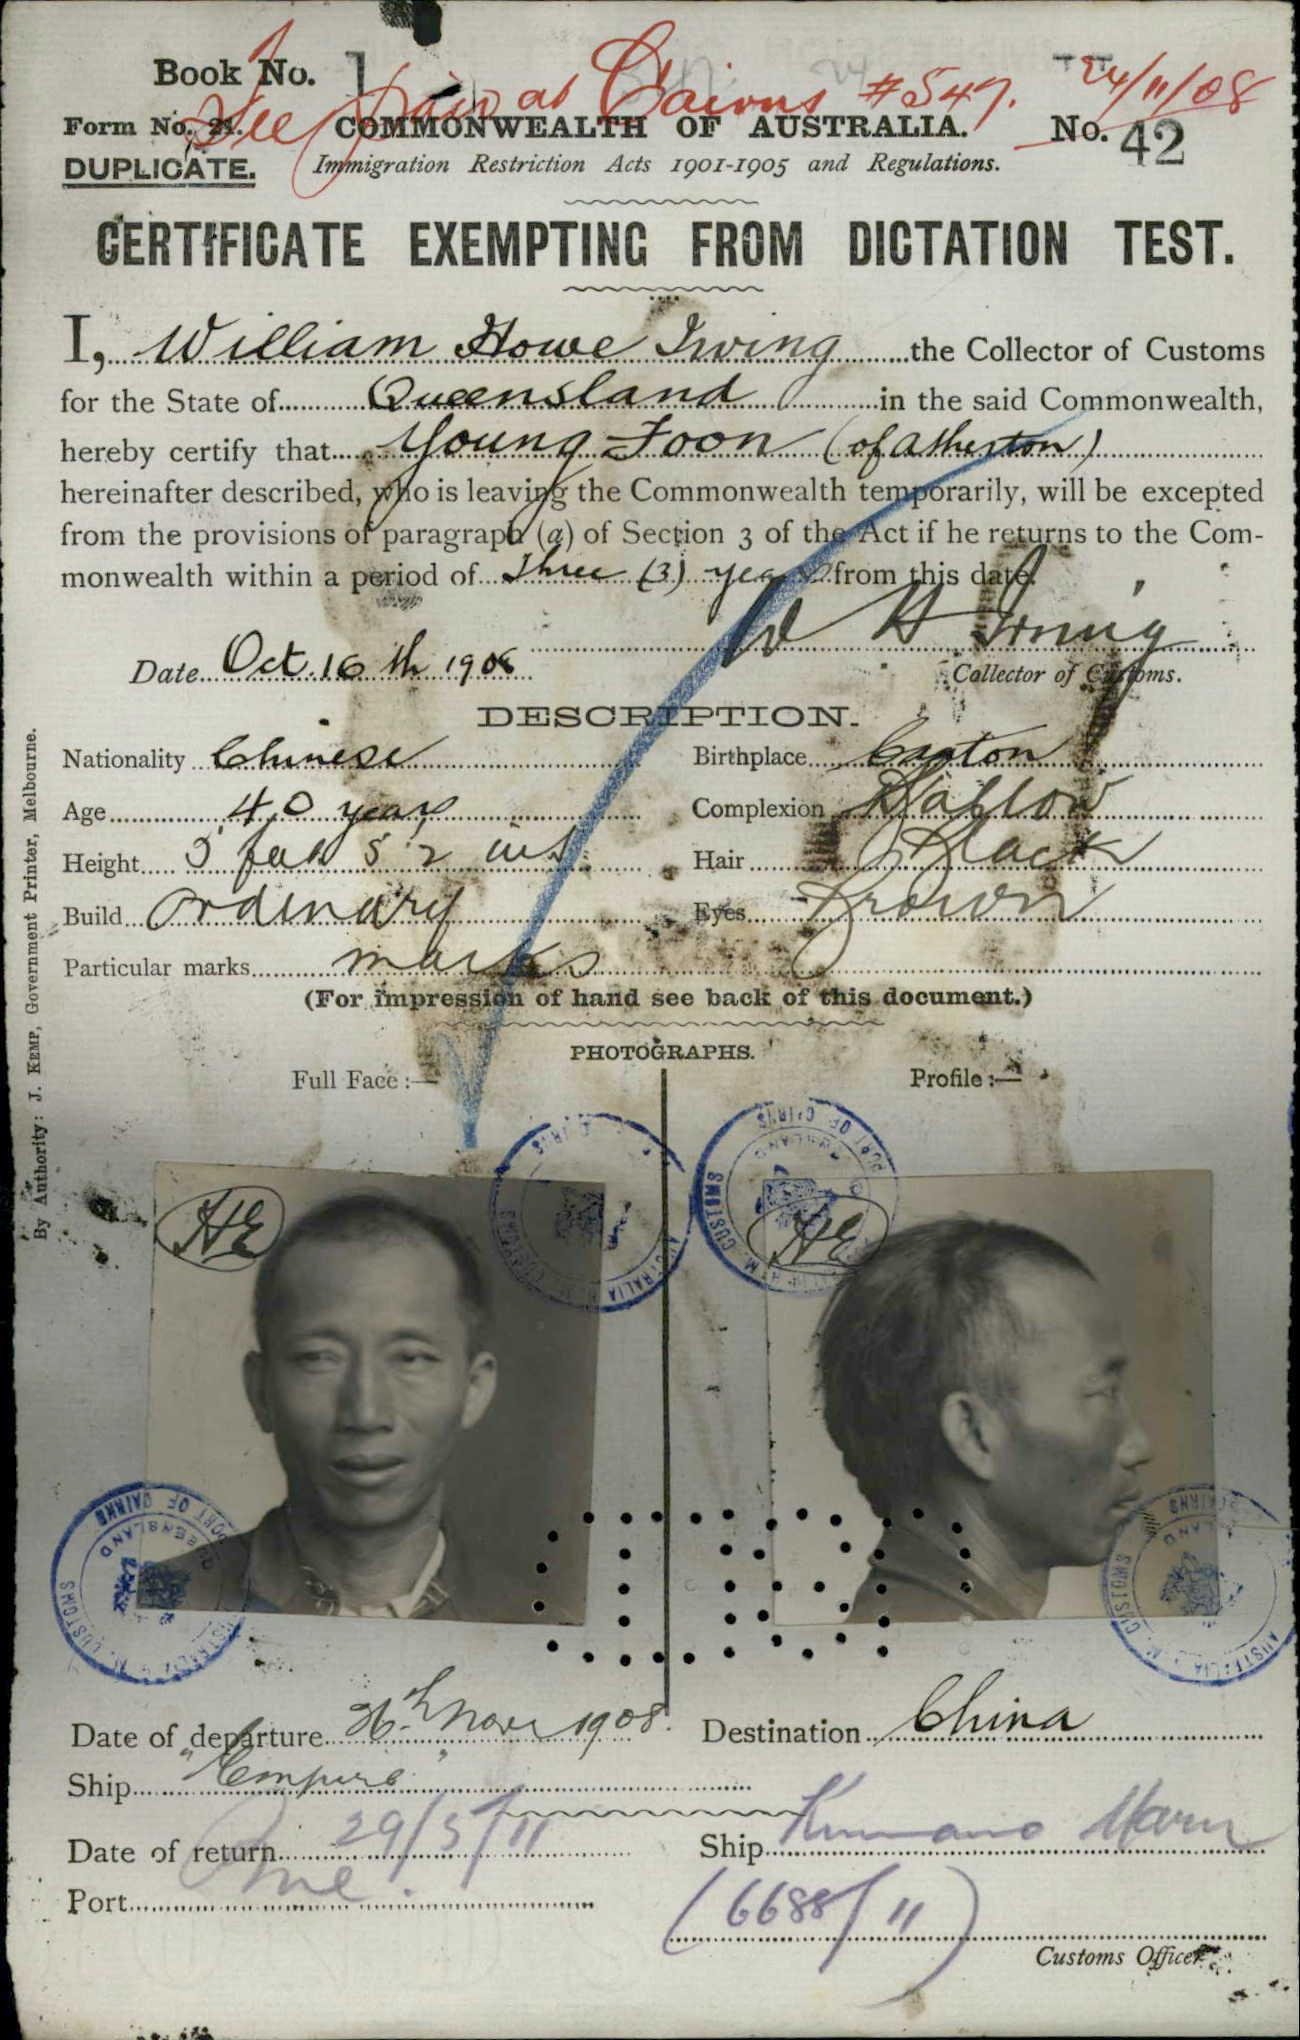 Book No. 1
24/11/08
Cairns #547.
Form No. 21. COMMONWEALTH OF AUSTRALIA. No. 42
DUPLICATE. Immigration Restriction Acts 1901-1905 and Regulations.
CERTIFICATE EXEMPTING FROM DICTATION TEST.
I, William Howe Irving the Collector of Customs
for the State of Queensland in the said Commonwealth,
hereby certify that Young Foon (of Atherton)
hereinafter described, who is leaving the Commonwealth temporarily, will be excepted
from the provisions of paragraph (a) of Section 3 of the Act if he returns to the Com-
monwealth within a period of Three (3) years from this date.
W H Irving
Date Oct. 16th 1908 Collector of Customs.
DESCRIPTION.
Nationality Chinese Birthplace Canton
Age 40 years Complexion Sallow
Height 5 feet 5½ ins Hair Black
Build ordinary Eyes Brown
Particular marks marks
(For impression of hand see back of this document.)
PHOTOGRAPHS.
Full Face :— Profile :—
HE HE
PORT OF CAIRNS
QUEENSLAND
CUSTOMS
AUSTRALIA
Date of departure 26th Novr 1908. Destination China
Ship "Empire"
Date of return 29/5/11 Ship Kumano Maru
Port
(6688/11)
Customs Officer.
By Authority: J. KEMP, Government Printer, Melbourne.